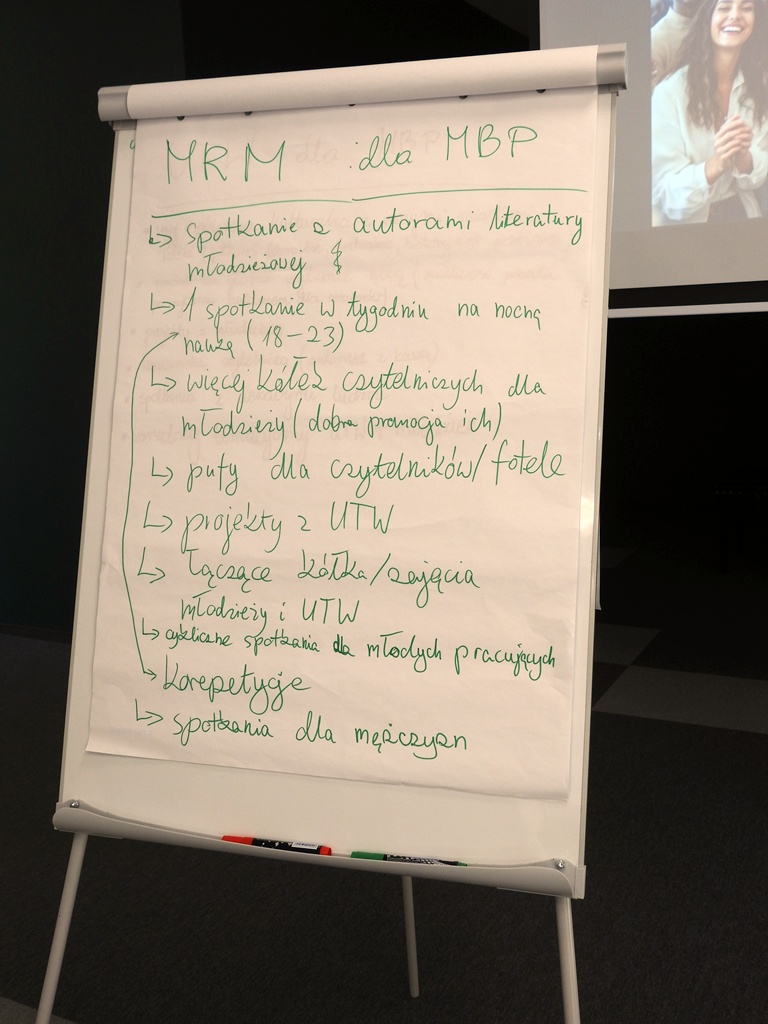 MRM dla MBP
↳ spotkanie z autorami literatury
młodzieżowej
↳ 1 spotkanie w tygodniu na nocną
naukę (18-23)
↳ więcej kółek czytelniczych dla
młodzieży (dobra promocja ich)
↳ pufy dla czytelników/fotele
↳ projekty z UTW
↳ łączące kółka/zajęcia
młodzieży i UTW
↳ cykliczne spotkania dla młodych pracujących
korepetycje
↳ spotkania dla mężczyzn